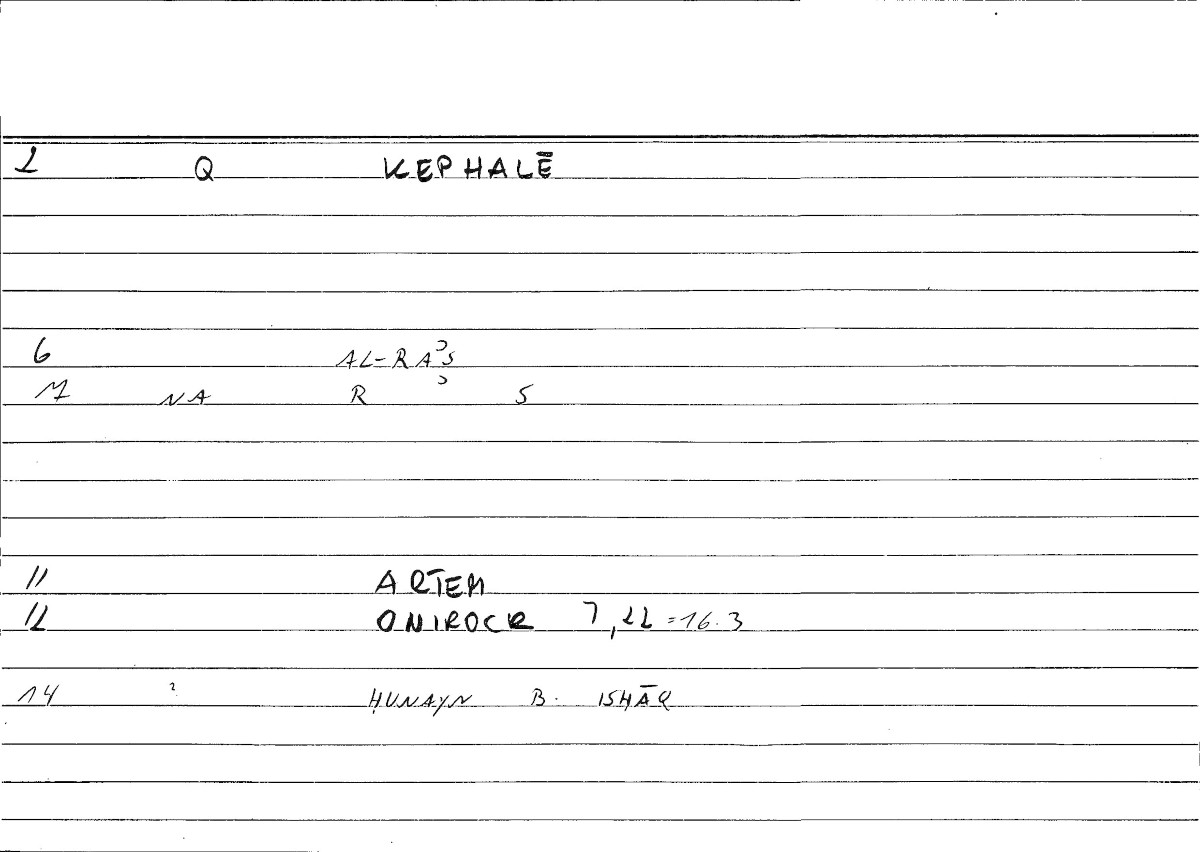 1 Q KEPHALĒ
6 AL-RAʾS
7 NA R ʾ S
11 ARTEM
12 ONIROCR 7,22 = 16.3
14 ² ḤUNAYN B. ISḤĀQ